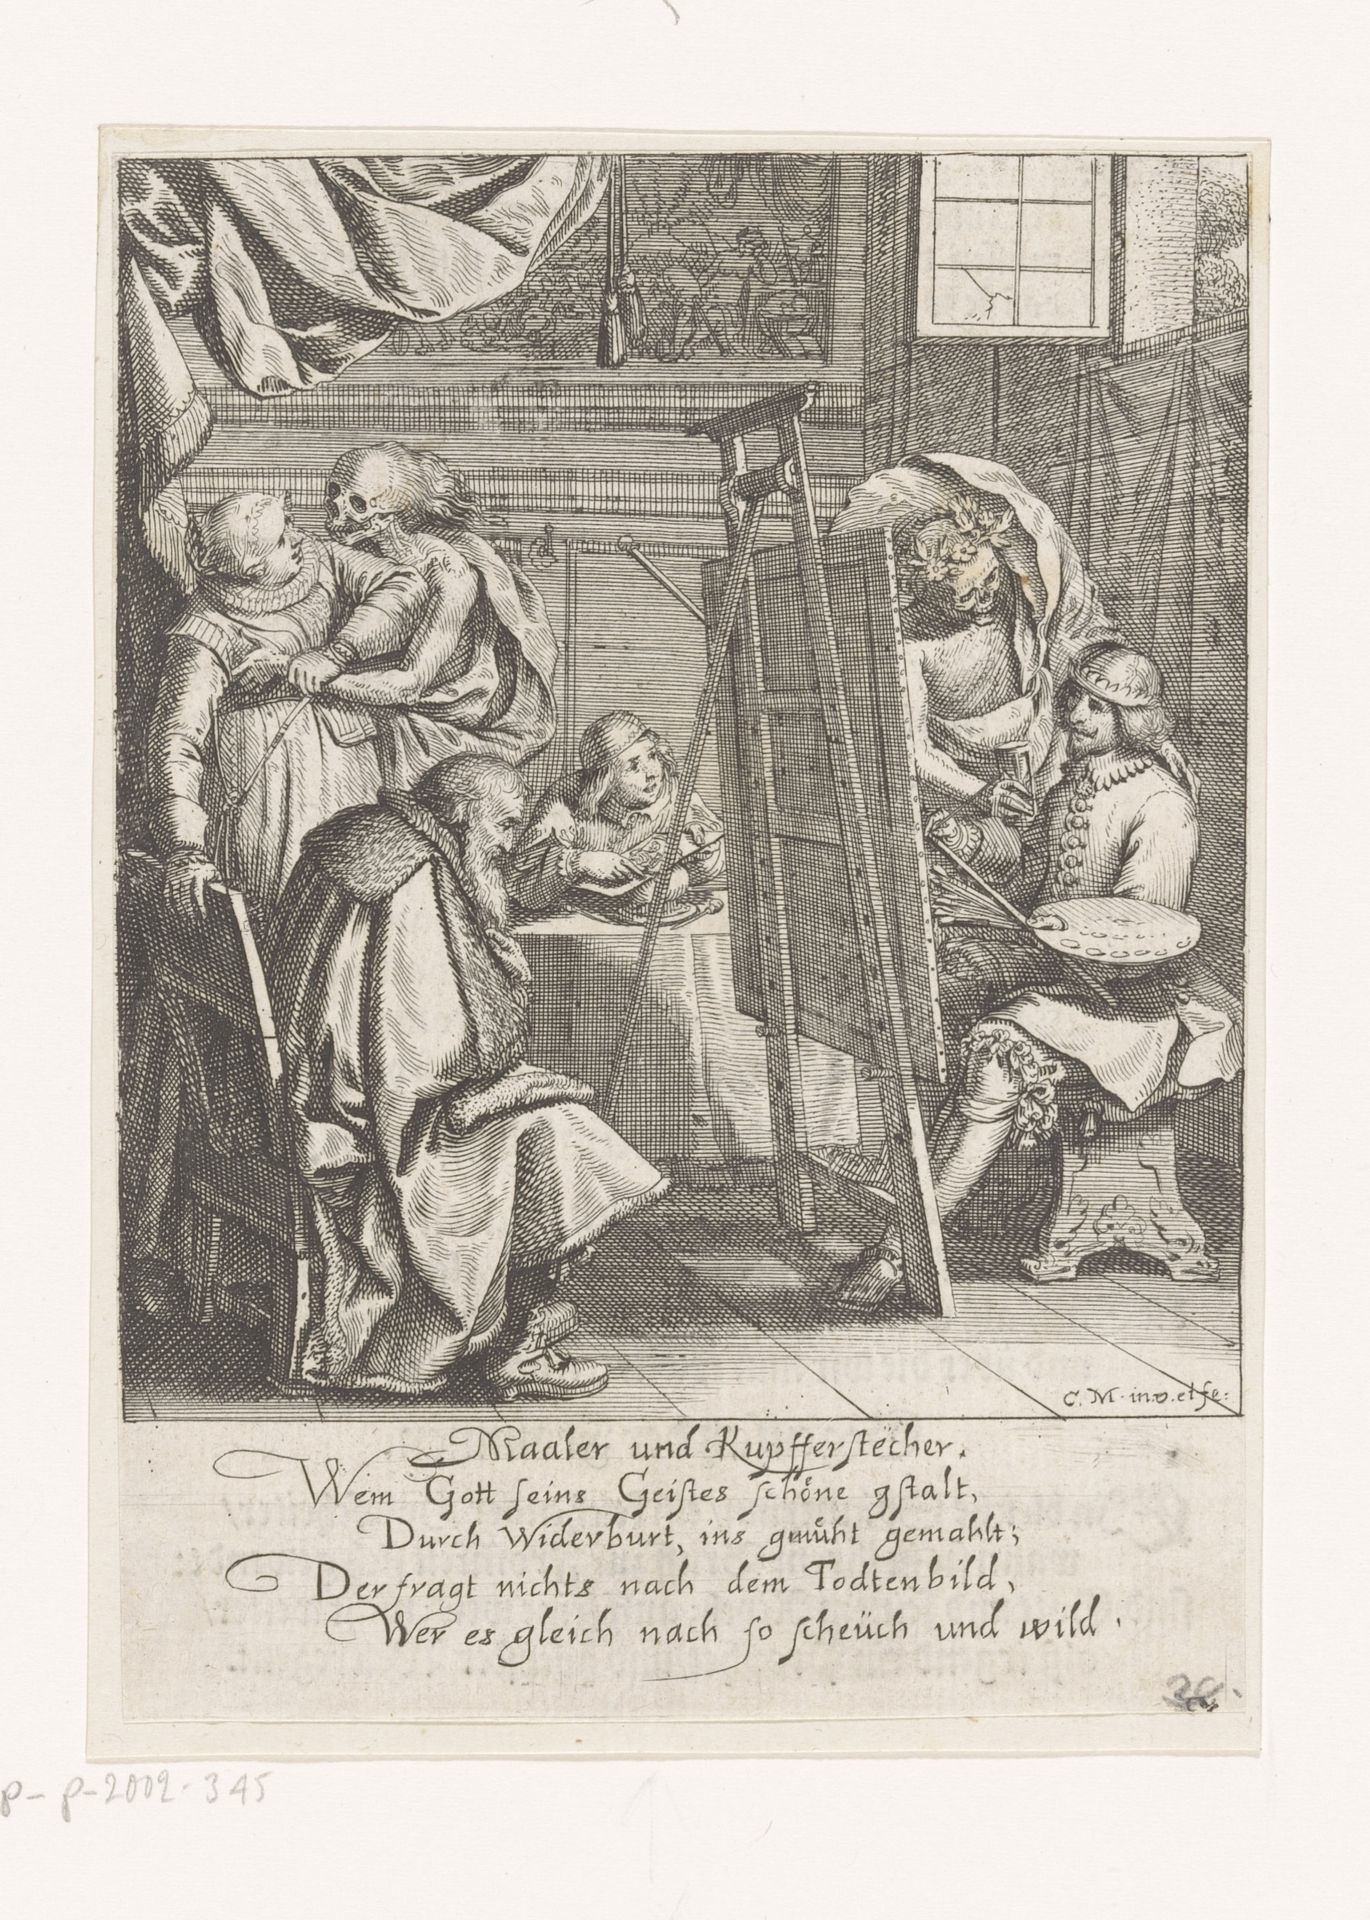 C. M. inv. et fe:
Maaler und Kupfferstecher.
Wem Gott seins Geistes schöne gstalt,
Durch Widerburt, ins gmüht gemahlt;
Der fragt nichts nach dem Todtenbild,
Wer es gleich nach so scheüch und wild.
p-p-2002-345